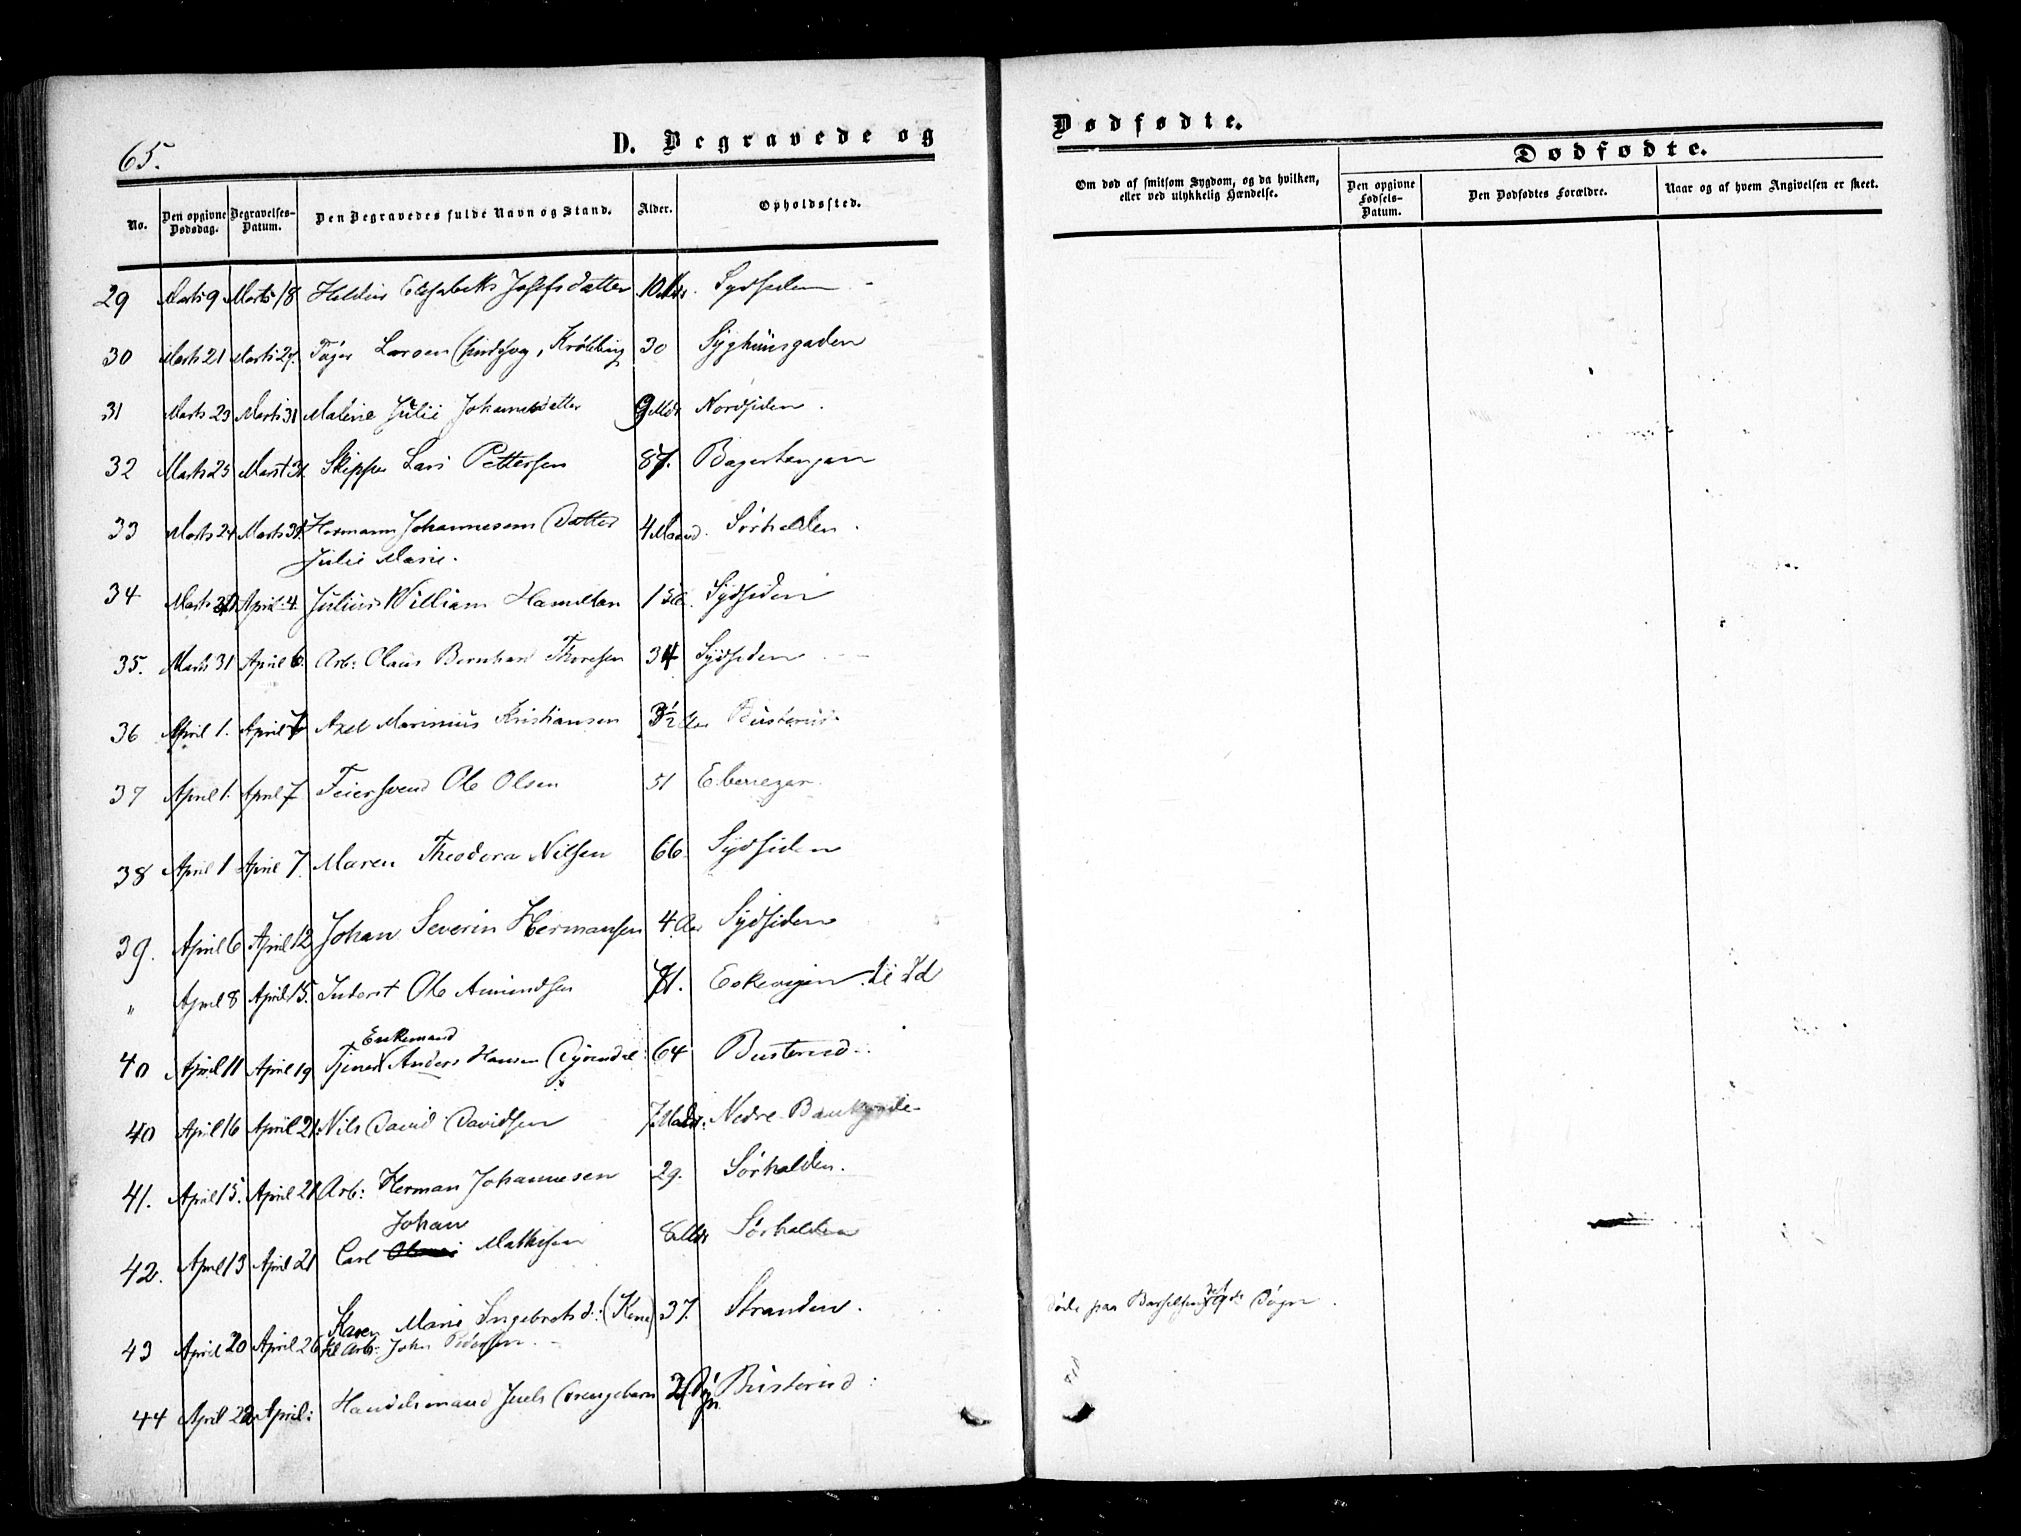 65.
D. Begravede og
Dødfødte.
No.
Den opgivne Dødsdag.
Begravelses-Datum.
Den Begravedes fulde Navn og Stand.
Alder.
Opholdssted.
Om død af smitsom Sygdom, og da hvilken, eller ved ulykkelig Hændelse.
Dødfødte.
Den opgivne Fødsels-Datum.
Den Dødfødtes Forældre.
Naar og af hvem Angivelsen er skeet.
29 Marts 9 Marts 18 Elisabeth Josefsdatter 10 Mdr. Sydsiden
30 Marts 21 Marts 27. Larsen 30 Syghuusgaden
31 Marts 23 Marts 31 Malene Julie Johannesdatter 9 Mdr Nordsiden.
32 Marts 25 Marst 31. Skipper Lars Pettersen 87. Bagerhaugen
33 Marts 24 Marts 31. Hermann Johannesens Datter 4 Maaned. Sørhalden.
Julie Marie.
34 Marts April 4. Julius William Hamilton 1 Sydsiden
35. Marts 31 April 6. Arb: Olaus Bernhard Thoresen 34 Sydsiden
36 April 1. April 7 Axel Marinius Kristiansen 3½ Aar Busterud.
37 April 1. April 7 Feiersvend Ole Olsen 51
38 April 1 April 7. Maren Theodora Nilsen 66. Sydsiden
39. April 6 April 12 Johan Severin Hermansen 4 Aar Sydsiden
" April 8 April 15. Inderst Ole Amundsen 71. Eskevigen i Id
Enkemand
40 April 11 April 19 Tjener Anders Hansen 64 Busterud.
40 April 16 April 21. Nils David Davidsen 7 Mdr: Nedre Bankgade
41. April 15. April 21 Arb: Herman Johannesen 29. Sørhalden.
Johan
42. April 13 April 21 Carl Mathisen 8 Mdr Sørhalden
Karen Marie Ingebretsd: (Kone) 37. Stranden. Døde paa Barselseng Døgn.
43 April 20 April 26 til Arb: John Pedersen.
44 April 22 April: Handelsmand Juels Drengebarn 2 Døgn Busterud